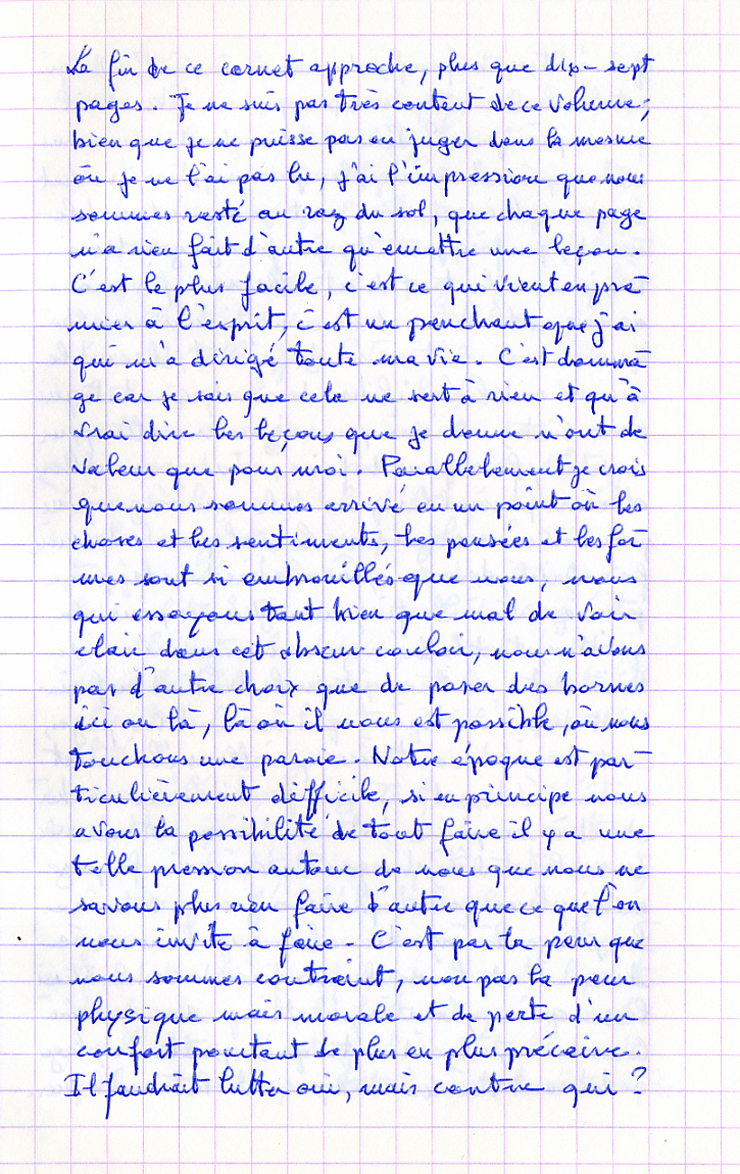 La fin de ce carnet approche, plus que dix-sept
pages. Je ne suis pas très content de ce volume;
bien que je ne puisse pas en juger dans la mesure
où je ne l'ai pas lu, j'ai l'impression que nous
sommes resté au raz du sol, que chaque page
n'a rien fait d'autre qu'émettre une leçon.
C'est le plus facile, c'est ce qui vient en pre-
mier à l'esprit, c'est un penchant que j'ai
qui m'a dirigé toute ma vie. C'est domma-
ge car je sais que cela ne sert à rien et qu'à
vrai dire les leçons que je donne n'ont de
valeur que pour moi. Parallèlement je crois
que nous sommes arrivé en un point où les
choses et les sentiments, les pensées et les for-
mes sont si embrouillés que nous, nous
qui essayons tant bien que mal de voir
clair dans cet obscur couloir, nous n'avons
pas d'autre choix que de poser des bornes
ici ou là, là où il nous est possible, où nous
touchons une paroie. Notre époque est par-
ticulièrement difficile, si en principe nous
avons la possibilité de tout faire il y a une
telle pression autour de nous que nous ne
savons plus rien faire d'autre que ce que l'on
nous invite à faire - C'est par la peur que
nous sommes contraint, non pas la peur
physique mais morale et de perte d'un
confort pourtant de plus en plus précaire.
Il faudrait lutter oui, mais contre qui?